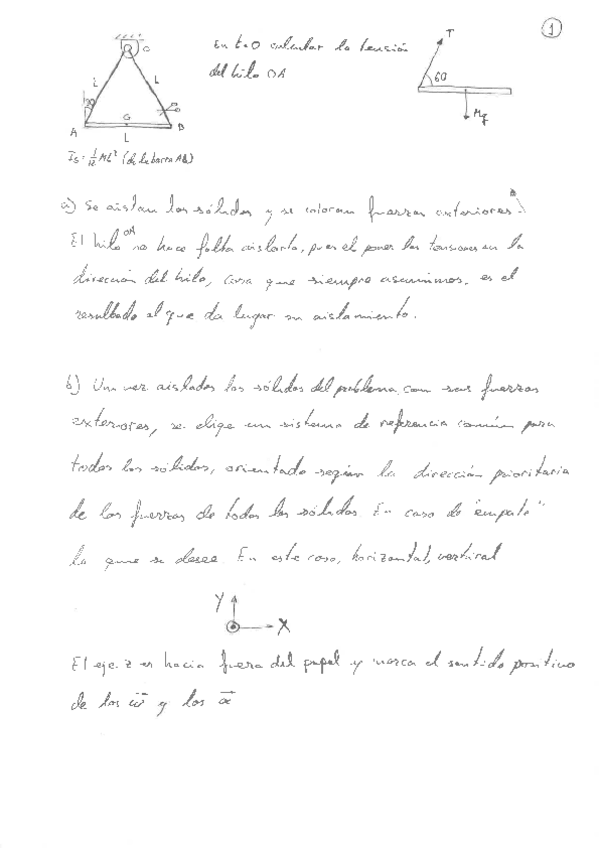 1
En t=0 calcular la tensión
del hilo OA
O
L
L
30
A
G
B
L
I_G = 1/12 ML² (de la barra AB)
T
60
Mg
a) Se aislan los sólidos y se colocan fuerzas exteriores.
El hilo OA no hace falta aislarlo, pues el poner las tensiones en la
dirección del hilo, cosa que siempre asumimos, es el
resultado al que da lugar su aislamiento.
b) Una vez aislados los sólidos del problema con sus fuerzas
exteriores, se elige un sistema de referencia común para
todos los sólidos, orientado según la dirección prioritaria
de las fuerzas de todos los sólidos. En caso de "empate"
la que se desee. En este caso, horizontal, vertical
Y
X
El eje z es hacia fuera del papel y marca el sentido positivo
de los ω⃗ y los α⃗